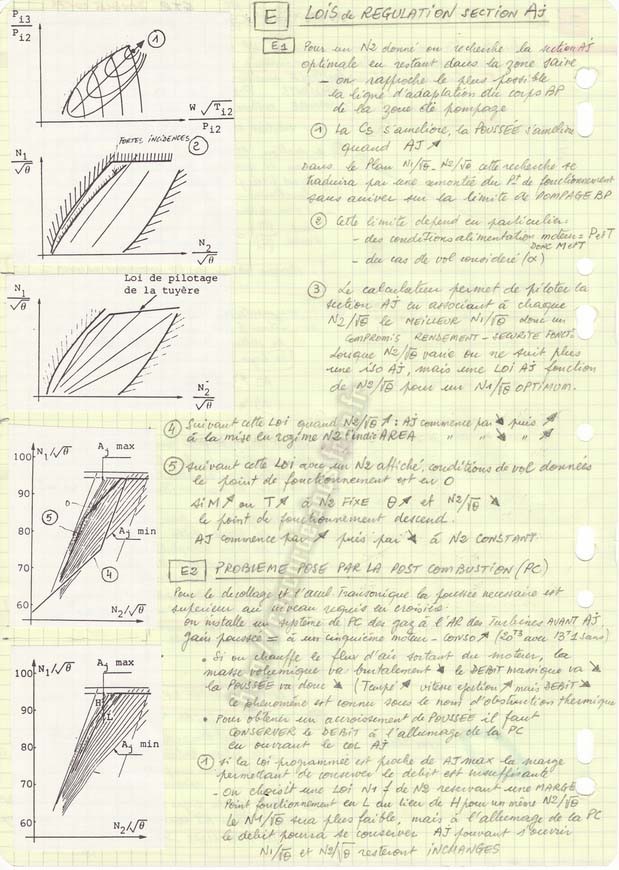 E LOIS de REGULATION SECTION AJ
E1 Pour un N2 donné on recherche la section AJ
optimale en restant dans la zone saine
- on rapproche le plus possible
la ligne d'adaptation du corps BP
de la zone de pompage
① La CS s'améliore, la POUSSÉE s'améliore
quand AJ ↗
Dans le Plan N1/√θ - N2/√θ cette recherche se
traduira par une remontée du Pt de fonctionnement
sans arriver sur la limite de POMPAGE BP
② Cette limite depend en particulier
- des conditions alimentation moteur = P et T
DONC M et PT
- du cas de vol considéré (α)
③ Le calculateur permet de piloter la
section AJ en associant à chaque
N2/√θ le MEILLEUR N1/√θ donc un
COMPROMIS RENDEMENT - SECURITE FONCT.
Lorsque N2/√θ varie on ne suit plus
une iso AJ, mais une LOI AJ fonction
de N2/√θ pour un N1/√θ OPTIMUM.
④ Suivant cette LOI quand N2/√θ ↗ : AJ commence par ↘ puis ↗
à la mise en régime N2 l'indic AREA " " ↘ " ↗
⑤ Suivant cette LOI avec un N2 affiché, conditions de vol données
le point de fonctionnement est en O
Si M ↗ ou T ↗ à N2 FIXE θ ↗ et N2/√θ ↘
le point de fonctionnement descend.
AJ commence par ↗ puis par ↘ à N2 CONSTANT
E2 PROBLEME POSE PAR LA POST COMBUSTION (PC)
Pour le decollage et l'accel Transonique la poussée necessaire est
superieur au niveau requis en croisière.
on installe un système de PC des gaz à l'AR des Turbines AVANT AJ.
gain poussée = à un cinquième moteur - CONSO ↗ (20T3 avec 13T1 sans)
• Si on chauffe le flux d'air sortant du moteur, la
masse volumique va brutalement ↘ le DEBIT massique va ↘
la POUSSÉE va donc ↘ (Tempé ↗ vitesse ejection ↗ mais DEBIT ↘
le phenomène est connu sous le nom d'obstruction thermique
• Pour obtenir un accroissement de POUSSÉE il faut
CONSERVER LE DEBIT à l'allumage de la PC
en ouvrant le COL AJ
① si la loi programmée est proche de AJ max la marge
permettant de conserver le debit est insuffisante
- On choisit une LOI N1 f de N2 reservant une MARGE
Point fonctionnement en L au lieu de H pour un même N2/√θ
le N1/√θ sera plus faible, mais à l'allumage de la PC
le debit pourra se conserver AJ pouvant s'ouvrir
N1/√θ et N2/√θ resteront INCHANGES
Pi3
Pi2
①
W √Ti2
Pi2
FORTES INCIDENCES
N1
√θ
②
N2
√θ
Loi de pilotage
de la tuyère
N1
√θ
N2
√θ
N1/√θ
Aj max
100
90
80
70
60
O
⑤
Aj min
④
N2/√θ
N1/√θ
Aj max
100
90
80
70
60
H
L
Aj min
N2/√θ